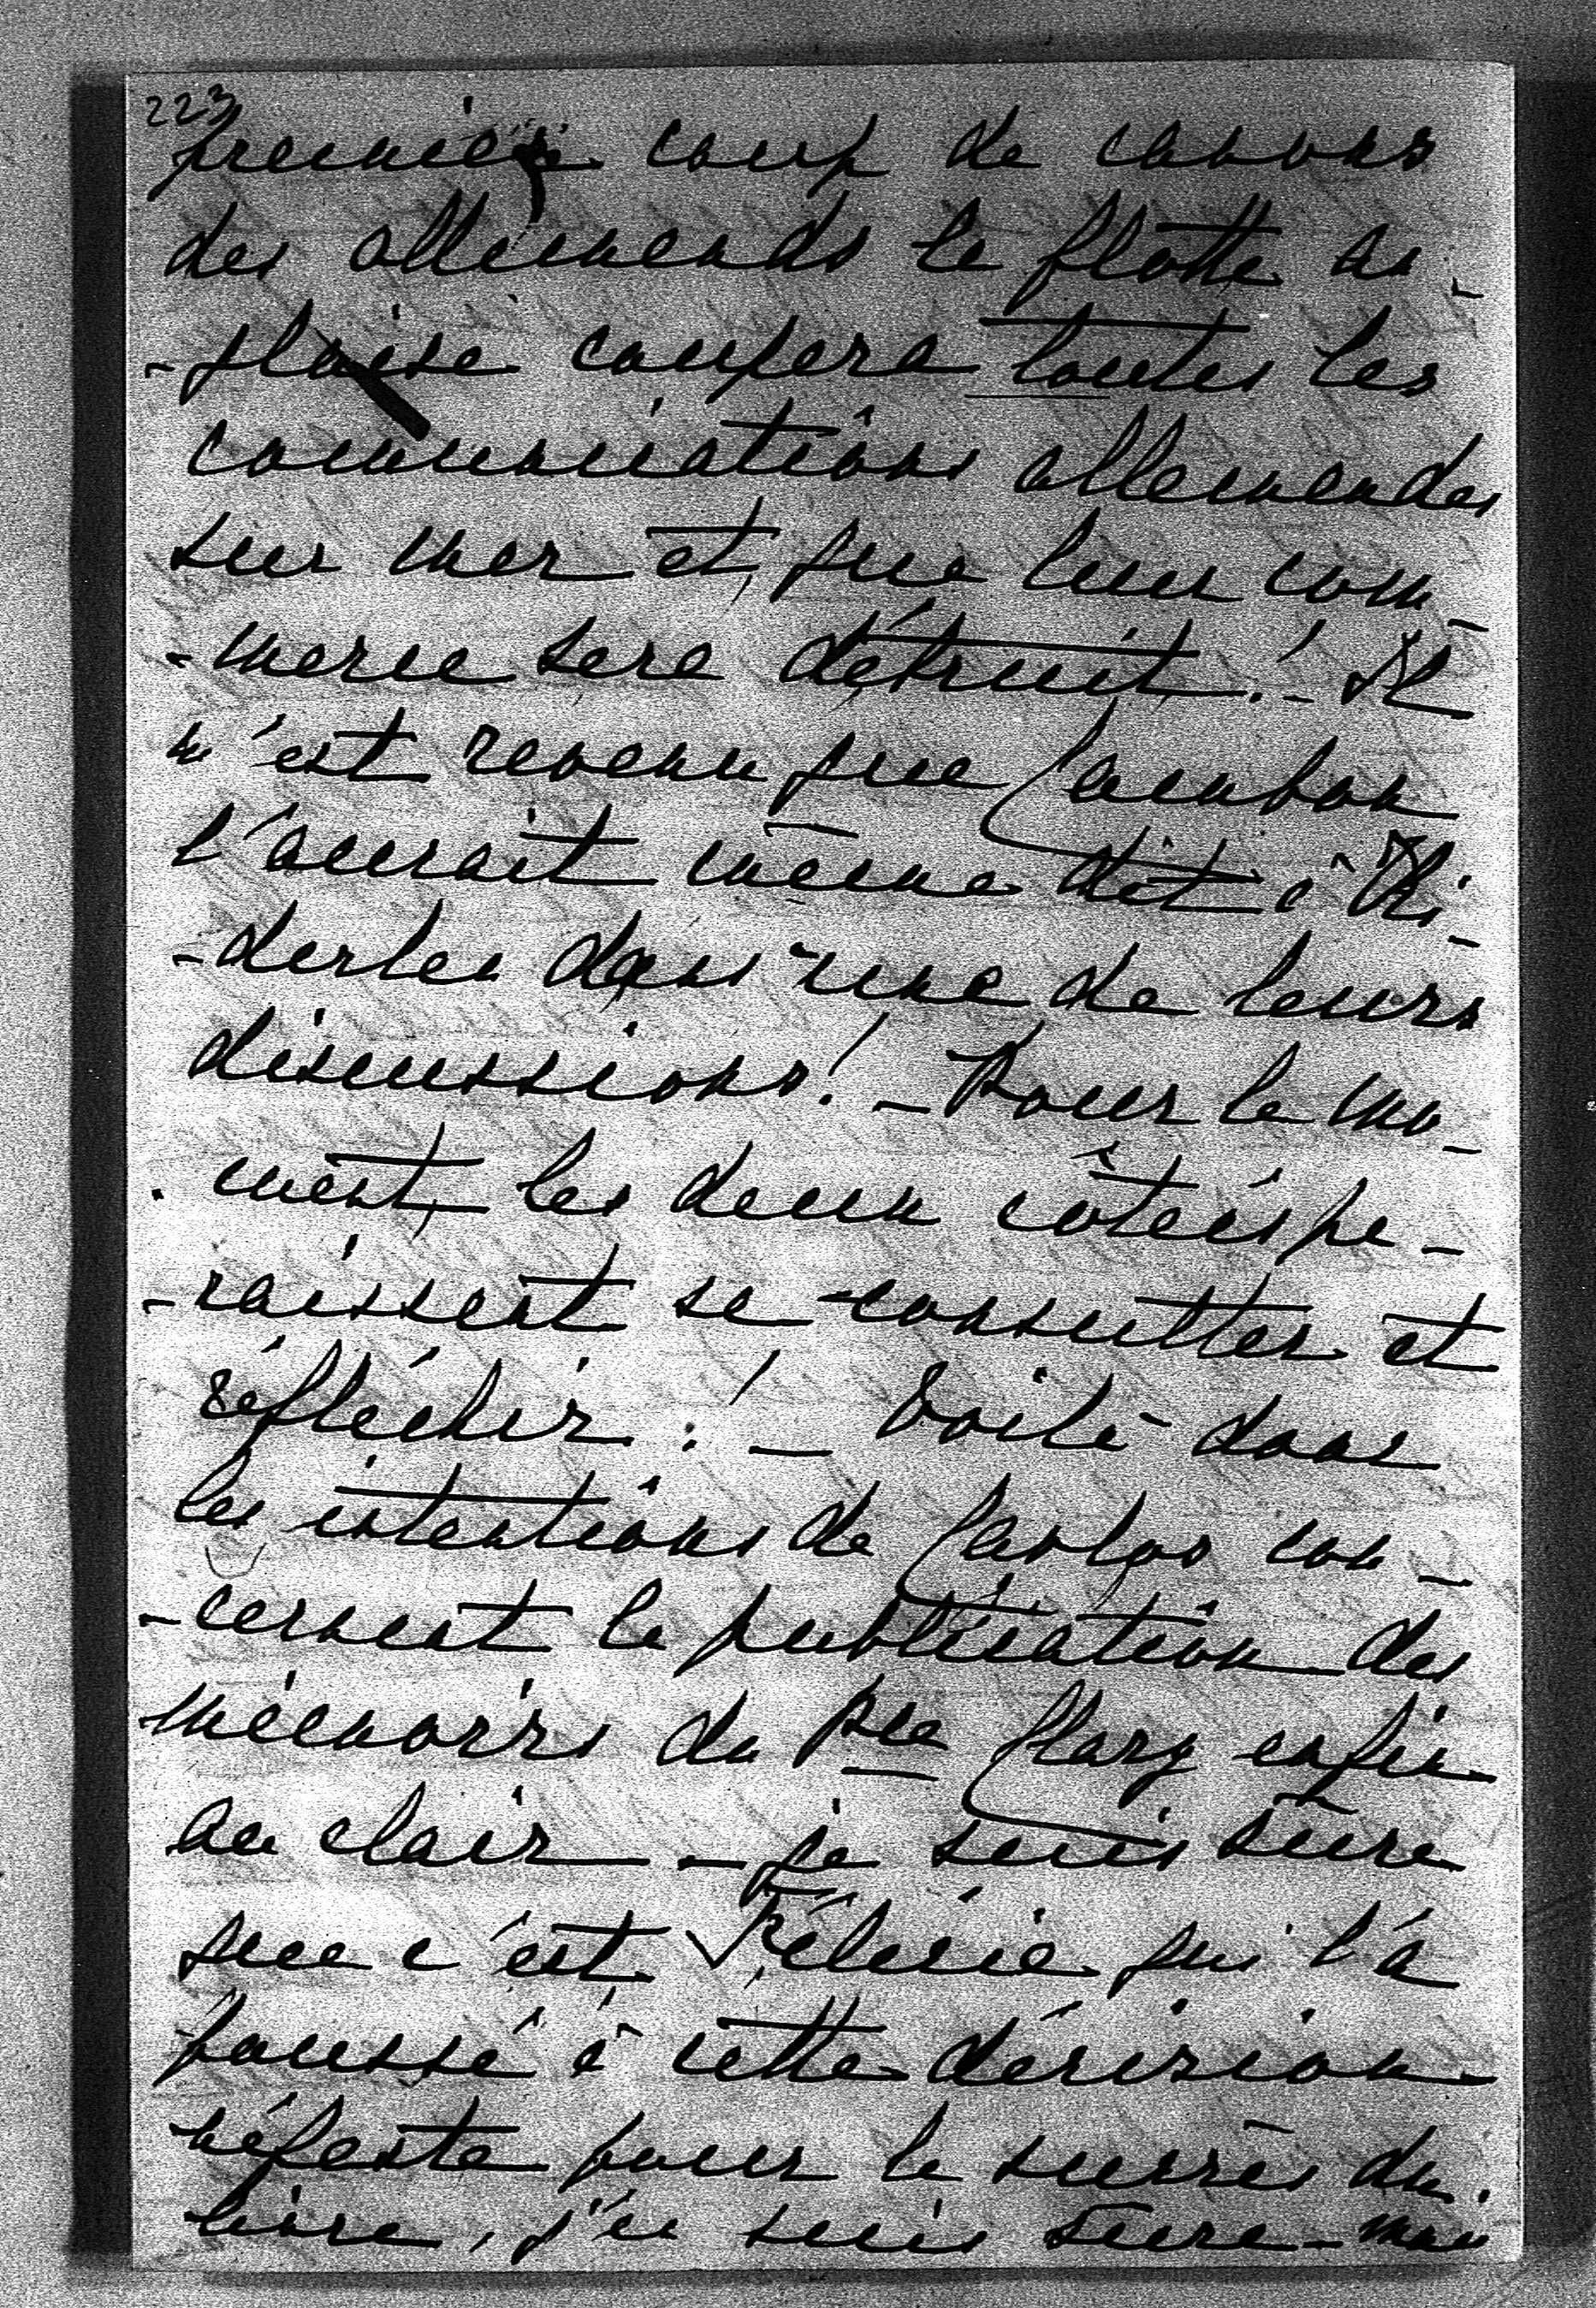 223
premier coup de canons
des allemands la flotte an-
-glaise coupera toutes les
communications allemandes
sur mer et que leur com-
-merce sera détruit! - Il
m'est revenu que Cambon
l'aurait même dit à Ki-
-derlen dans une de leurs
discussions! - Pour le mo-
-ment, les deux côtés pa-
-raissent se consulter et
réfléchir! - Voilà donc
les intentions de Carlos con-
-cernant la publication des
mémoires du Pce Charg enfin
au clair - je suis sûre
que c'est qui l'a
poussé à cette décision
néfaste pour le succès du
livre, j'en suis sûre - mais